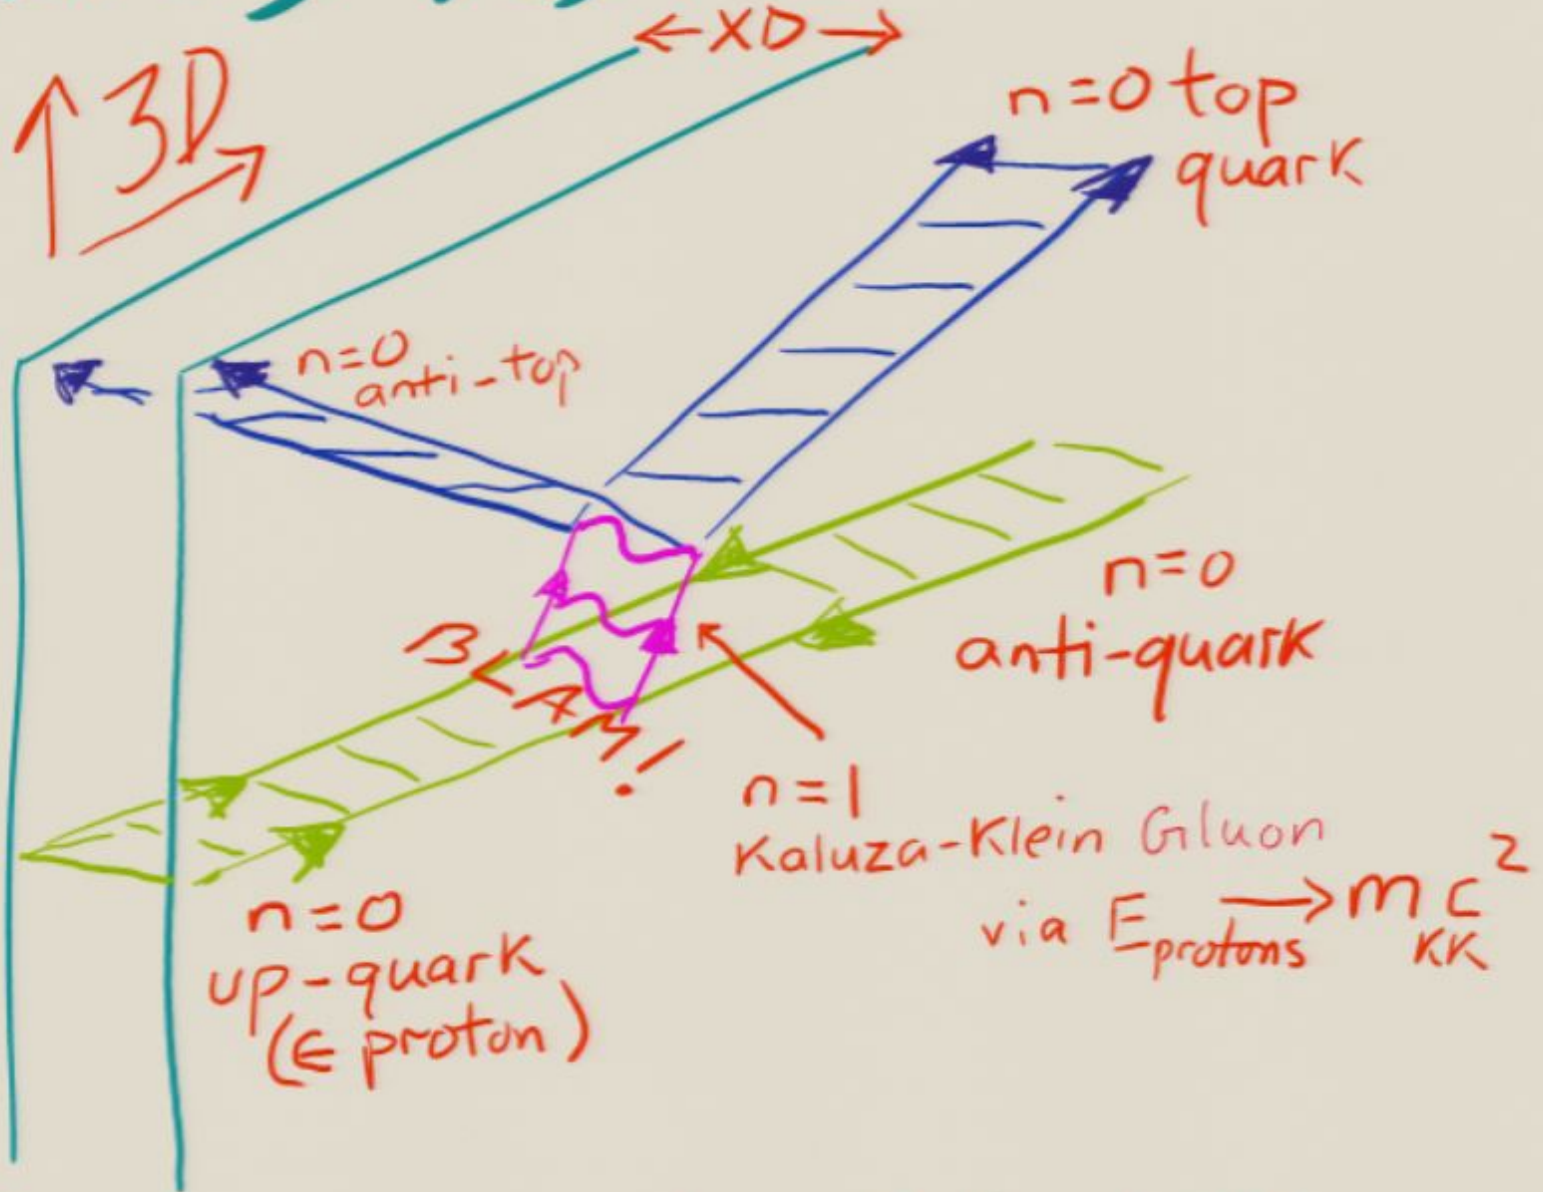 ←XD→
3D
n=0 top
quark
n=0
anti-top
n=0
anti-quark
BAM!
n=1
Kaluza-Klein Gluon
via E protons → m KK c²
n=0
up-quark
(∈ proton)